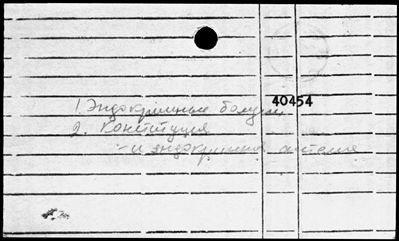 40454
1. Эндокринные болезни
2. Конституция
- и эндокринная система